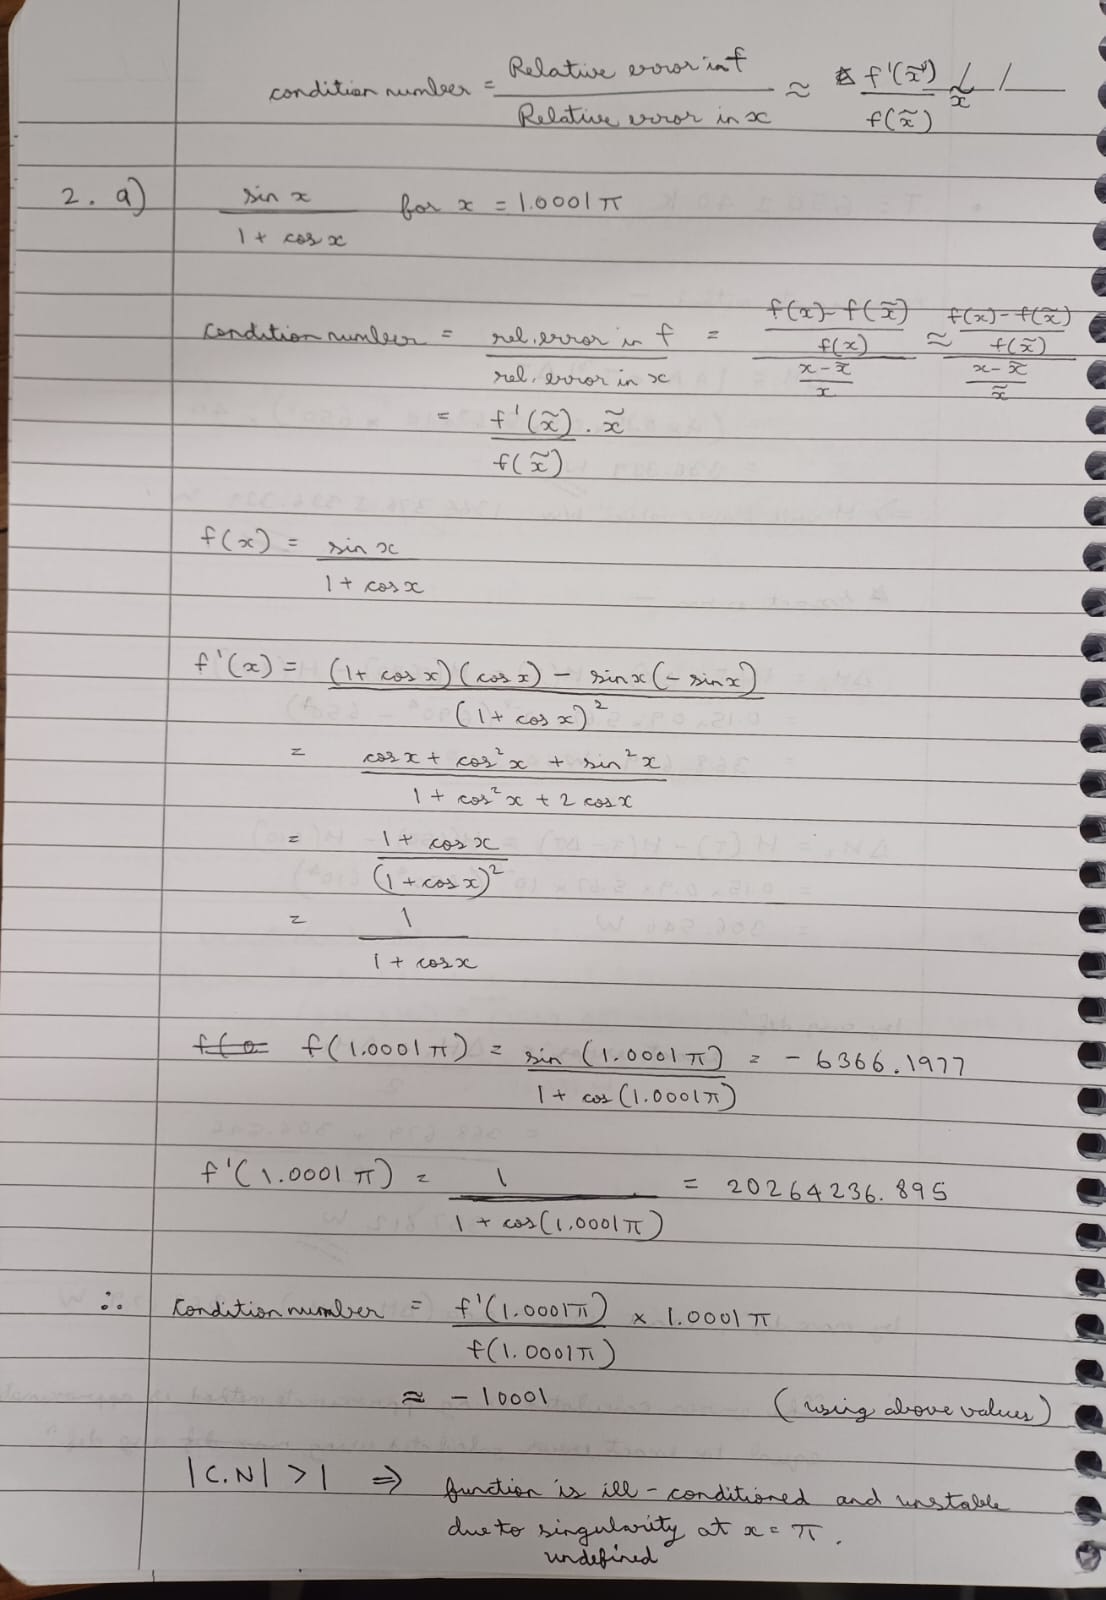 condition number = Relative error in f / Relative error in x ≈ f'(x̃) / f(x̃) x̃
2. a) sin x / 1 + cos x for x = 1.0001 π
condition number = rel. error in f / rel. error in x = f(x) - f(x̃) / f(x) / x - x̃ / x ≈ f(x) - f(x̃) / f(x̃) / x - x̃ / x̃
= f'(x̃) . x̃ / f(x̃)
f(x) = sin x / 1 + cos x
f'(x) = (1 + cos x)(cos x) - sin x (- sin x) / (1 + cos x)²
= cos x + cos² x + sin² x / 1 + cos² x + 2 cos x
= 1 + cos x / (1 + cos x)²
= 1 / 1 + cos x
f(1.0001 π) = sin (1.0001 π) / 1 + cos (1.0001 π) = - 6366.1977
f'(1.0001 π) = 1 / 1 + cos (1.0001 π) = 20264236.895
∴ condition number = f'(1.0001 π) / f(1.0001 π) × 1.0001 π
≈ - 10001 (using above values)
|C.N| > 1 ⇒ function is ill-conditioned and unstable
due to singularity at x = π.
undefined